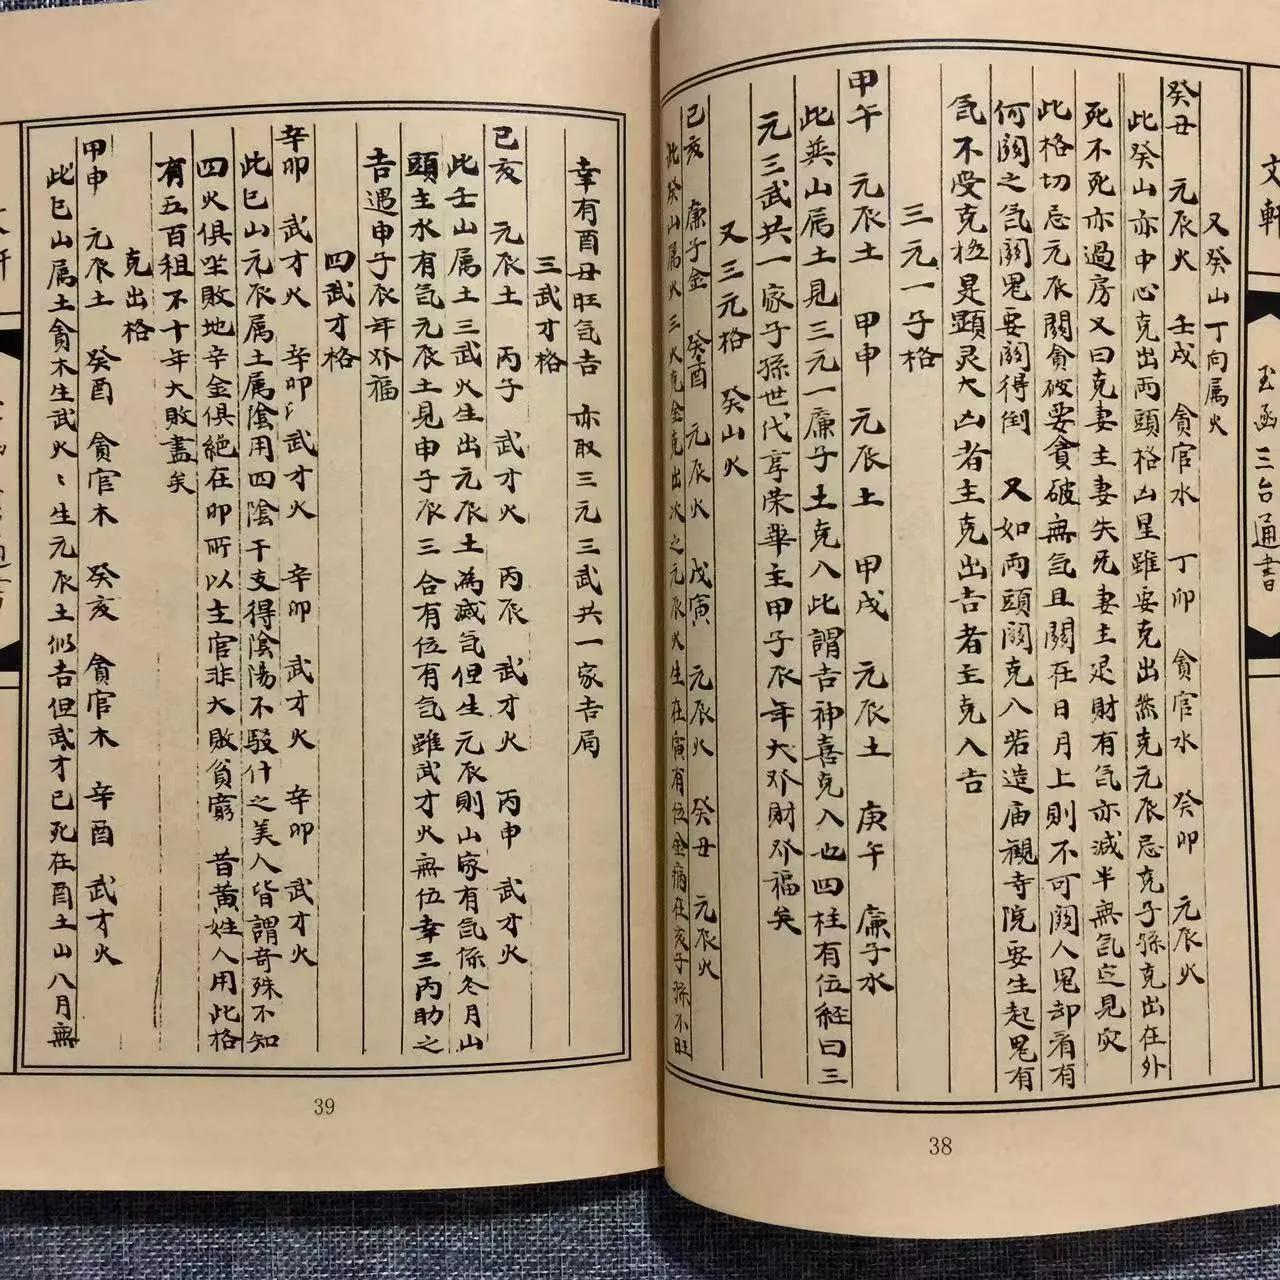 文軒
玉函三台通書
又癸山丁向属火
癸丑 元辰火 壬戌 貪官水 丁卯 貪官水 癸卯 元辰火
此癸山亦中心克出両頭格凶星雖要克出然克元辰忌克子孫克出在外
死不死亦過房又曰克妻主妻失死妻主足財有気亦減半無気定見灾
此格切忌元辰闘貪破要貪破無気且闘在日月上則不可闘人鬼却看有
何闘之気闘鬼要闘得倒 又如両頭闘克入若造庙観寺院要生起鬼有
気不受克極是顕灵大凶者主克出吉者主克入吉
三元一子格
甲午 元辰土 甲申 元辰土 甲戌 元辰土 庚午 廉子水
此英山属土見三元一廉子土克入此謂吉神喜克入也四柱有位経曰三
元三武共一家子孫世代享荣華主甲子辰年大外財外福矣
又三元格 癸山火
己亥 廉子金 癸酉 元辰火 戊寅 元辰火 癸丑 元辰火
此癸山属火三火克金克出次之元辰火生在寅有位金病在亥子孫不旺
38
幸有酉丑旺気吉 亦取三元三武共一家吉局
三武才格
己亥 元辰土 丙子 武才火 丙辰 武才火 丙申 武才火
此壬山属土三武火生出元辰土為滅気但生元辰則山家有気係冬月山
頭主水有気元辰土見申子辰三合有位有気雖武才火無位幸三丙助之
吉遇申子辰年外福
四武才格
辛卯 武才火 辛卯 武才火 辛卯 武才火 辛卯 武才火
此巳山元辰属土属陰用四陰干支得陰陽不駁什之美人皆謂奇殊不知
四火俱坐敗地辛金俱絶在卯所以主官非大敗貧窮 昔黄姓人用此格
有五百租不十年大敗盡矣
克出格
甲申 元辰土 癸酉 貪官木 癸亥 貪官木 辛酉 武才火
此巳山属土貪木生武火〻生元辰土似吉但武才已死在酉土山八月無
39